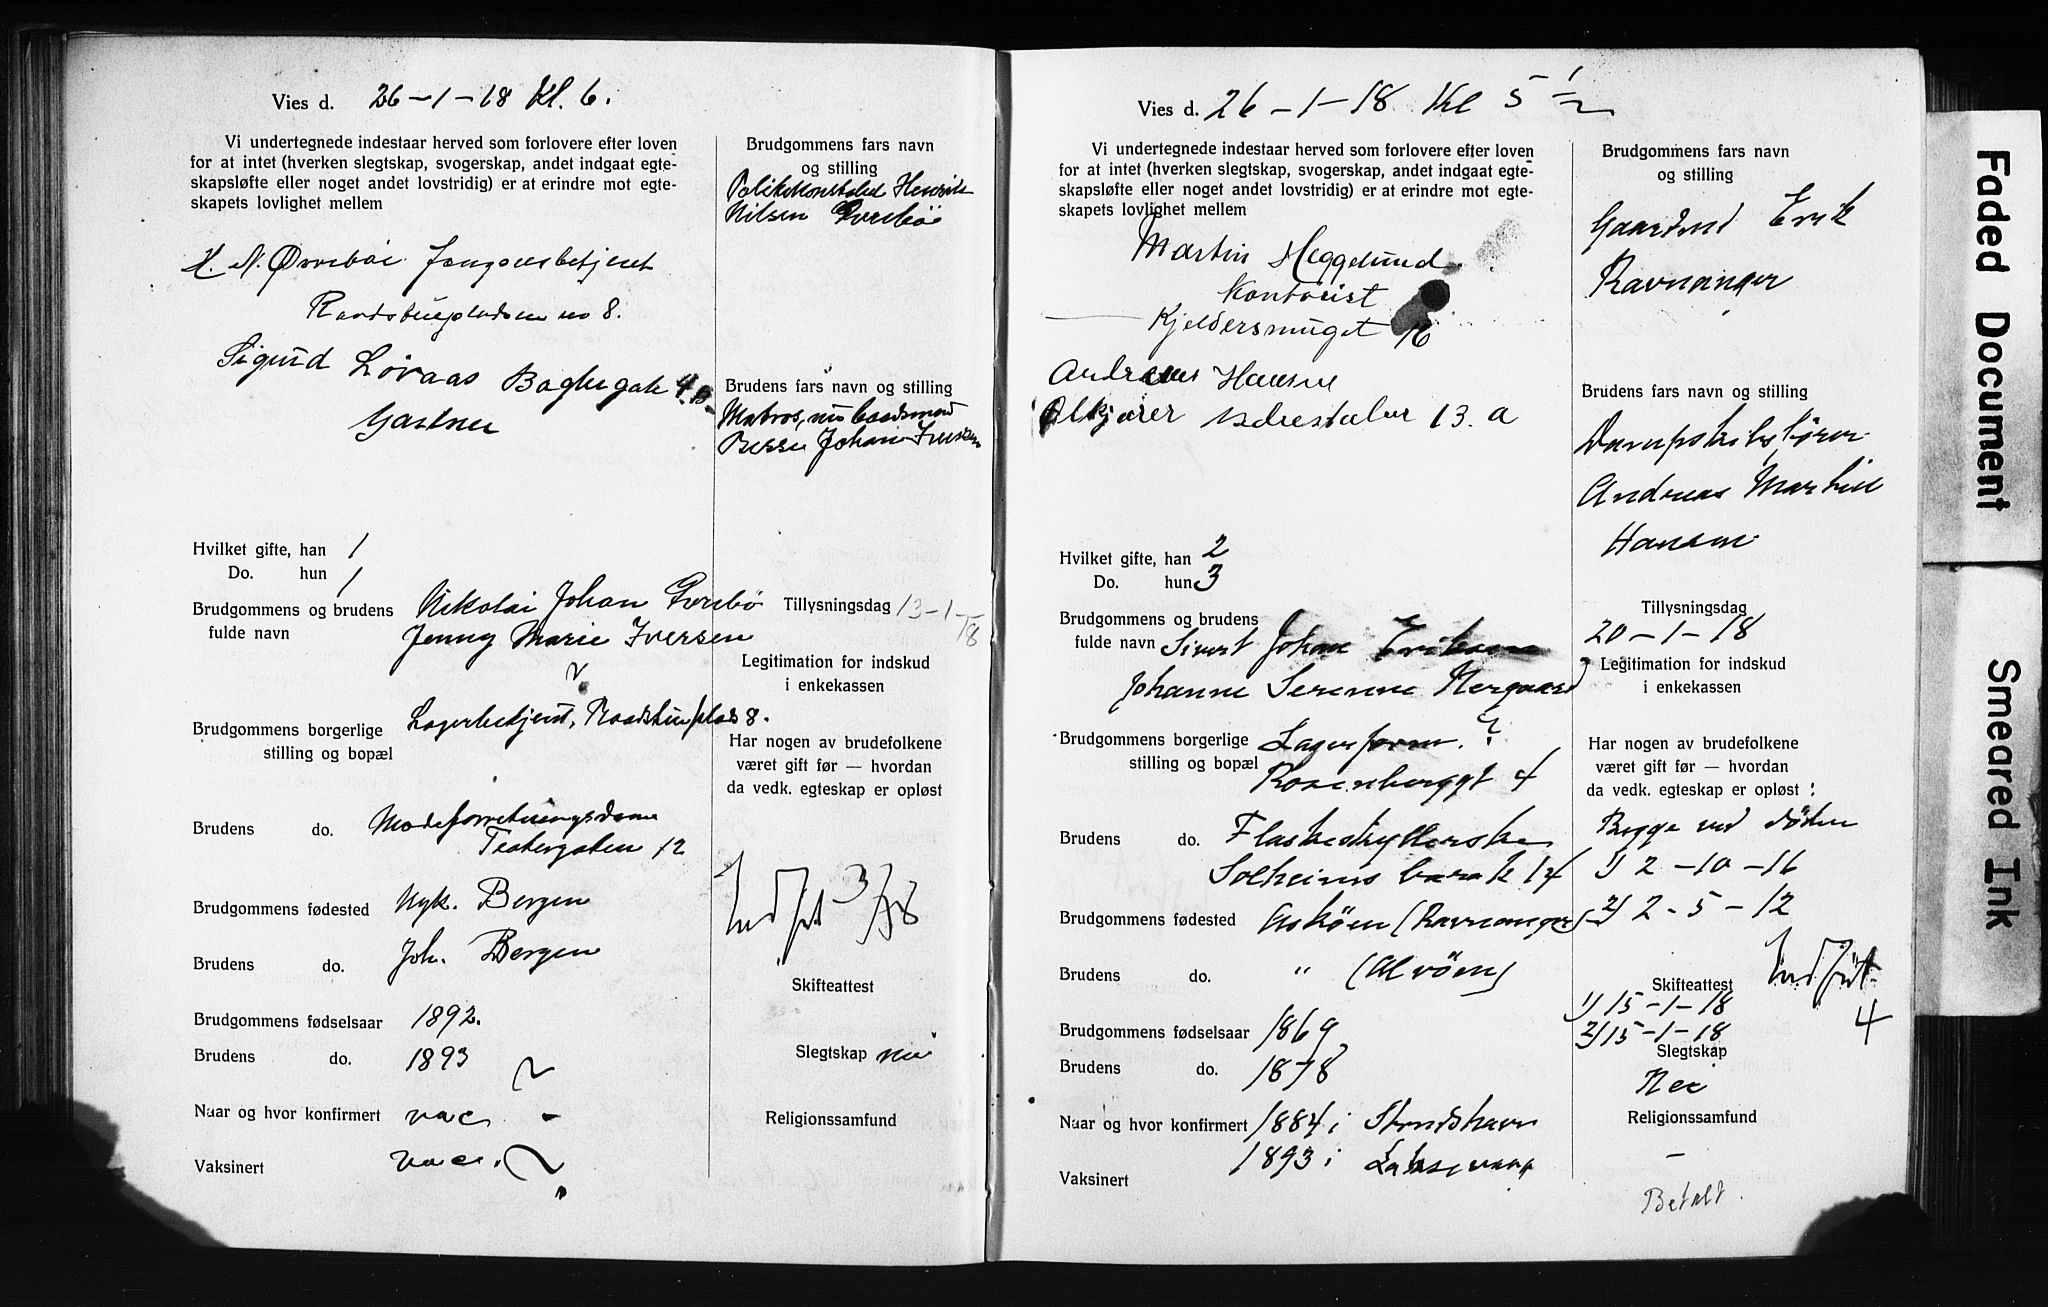 Vies d. 26-1-18 Kl. 6.
Vi undertegnede indestaar herved som forlovere efter loven
for at intet (hverken slegtskap, svogerskap, andet indgaat egte-
skapsløfte eller noget andet lovstridig) er at erindre mot egte-
skapets lovlighet mellem
H. N. Øvrebøe
Raadstuepladsen no 8.
Sigurd Løvaas Baglergate 4 B.
Gartner
Brudgommens fars navn
og stilling
Politikonstabel Henrik
Nilsen Øvrebö
Brudens fars navn og stilling
Matros, nu baadsmand
Johan Iversen
Hvilket gifte, han 1
Do. hun 1
Brudgommens og brudens
fulde navn
Nikolai Johan Øvrebö
Jenny Marie Iversen
Tillysningsdag 13-1-18
Legitimation for indskud
i enkekassen
Brudgommens borgerlige
stilling og bopæl
Lagerbetjent, Raadstuplads 8.
Har nogen av brudefolkene
været gift før — hvordan
da vedk. egteskap er opløst
Brudens do. Modeforretningsdame
Teatergaten 12
Brudgommens fødested Nyk. Bergen
Brudens do. Joh. Bergen
Indført 3/18
Skifteattest
Brudgommens fødselsaar 1892.
Brudens do. 1893
Slegtskap nei
Naar og hvor konfirmert vac -
Religionssamfund
Vaksinert vac.
Vies d. 26-1-18 Kl 5 1/2
Vi undertegnede indestaar herved som forlovere efter loven
for at intet (hverken slegtskap, svogerskap, andet indgaat egte-
skapsløfte eller noget andet lovstridig) er at erindre mot egte-
skapets lovlighet mellem
Martin Heggelund
Kontorist
Kjeldersmuget 16
Andreas Hansen
13. a
Brudgommens fars navn
og stilling
Gaardmd Erik
Ravnanger
Brudens fars navn og stilling
Dampskibsfører
Andreas Martin
Hansen
Hvilket gifte, han 2
Do. hun 3
Brudgommens og brudens
fulde navn Sivert Johan Eriksen
Johanne Serenne Nergaard
Tillysningsdag
20-1-18
Legitimation for indskud
i enkekassen
Brudgommens borgerlige
stilling og bopæl
Lagerform. ?
Rosenberggt 4
Har nogen av brudefolkene
været gift før — hvordan
da vedk. egteskap er opløst :
Begge ved döden
1) 2-10-16
2) 2-5-12
Brudens do. Flaskeskyllerske
Solheims barak 14
Brudgommens fødested Askøen (Ravnanger)
Brudens do. " (Alvøen)
Indført
4
Skifteattest
1) 15-1-18
2) 15-1-18
Brudgommens fødselsaar 1869
Brudens do. 1878
Slegtskap
Nei
Naar og hvor konfirmert 1884 i Strudshavn
1893 i Laksevaag
Vaksinert
Religionssamfund
-
Betalt.
Faded Document
Smeared Ink